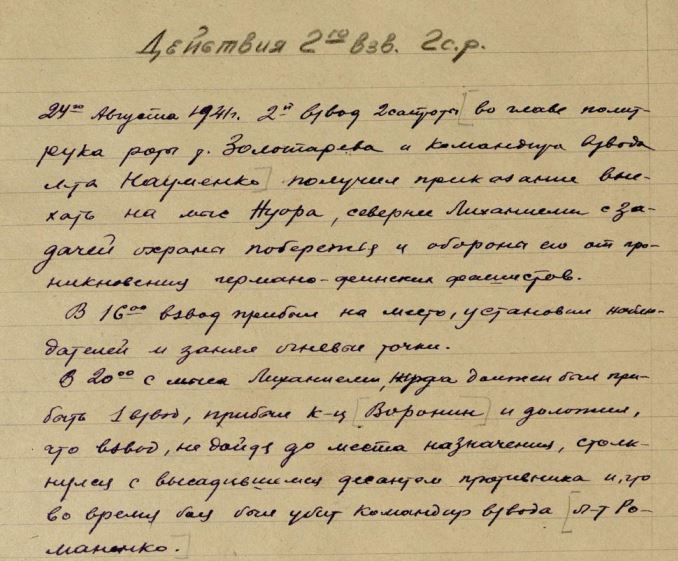 Действия 2го взв. 2с.р.
24го Августа 1941г. 2й взвод 2сапроты [во главе полит-
рука роты т. Золотарева и командира взвода
л-та Науменко] получил приказание вые-
хать на мыс Нуора, севернее Лиханиеми с за-
дачей охраны побережья и обороны его от про-
никновения германо-финских фашистов.
В 16оо взвод прибыл на место, установил наблю-
дателей и занял огневые точки.
В 20оо с мыса Лиханиеми, куда должен был при-
быть 1 взвод, прибыл к-ц [Воронин] и доложил,
что взвод, не дойдя до места назначения, столк-
нулся с высадившимся десантом противника и, что
во время боя был убит командир взвода [л-т Ро-
маненко.]